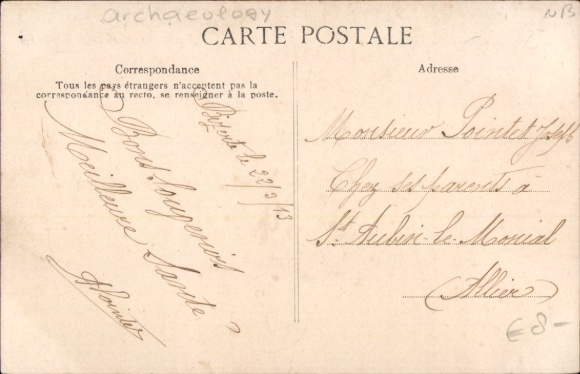 archaeology
NB
CARTE POSTALE
Correspondance
Tous les pays étrangers n'acceptent pas la
correspondance au recto, se renseigner à la poste.
Bizerte le 22/3/13
Bons Souvenirs
Meilleure Santé
A Pointet
Adresse
Monsieur Pointet Joseph
Chez ses parents à
St Aubin-le-Monial
(Allier)
€8-